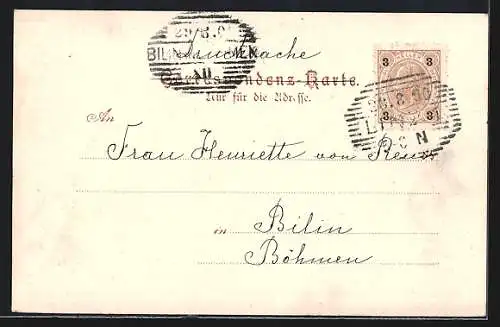 29/8.0
BILIN MEN
Drucksache
Correspondenz-Karte.
Nur für die Adresse.
3 3
3 3
28.8.00
LINZ
N
An
Frau Henriette von
in Bilin
Böhmen